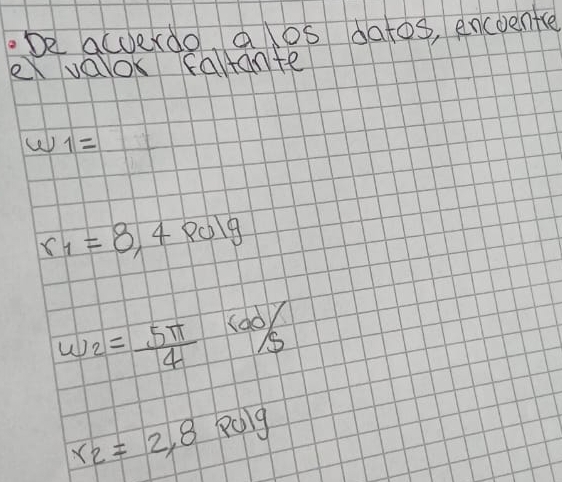 • De acuerdo a los datos, encuentre
el valor faltante
w1=
r1 = 8,4 pulg
w2 = 5π/4 rad/s
r2 = 2,8 pulg